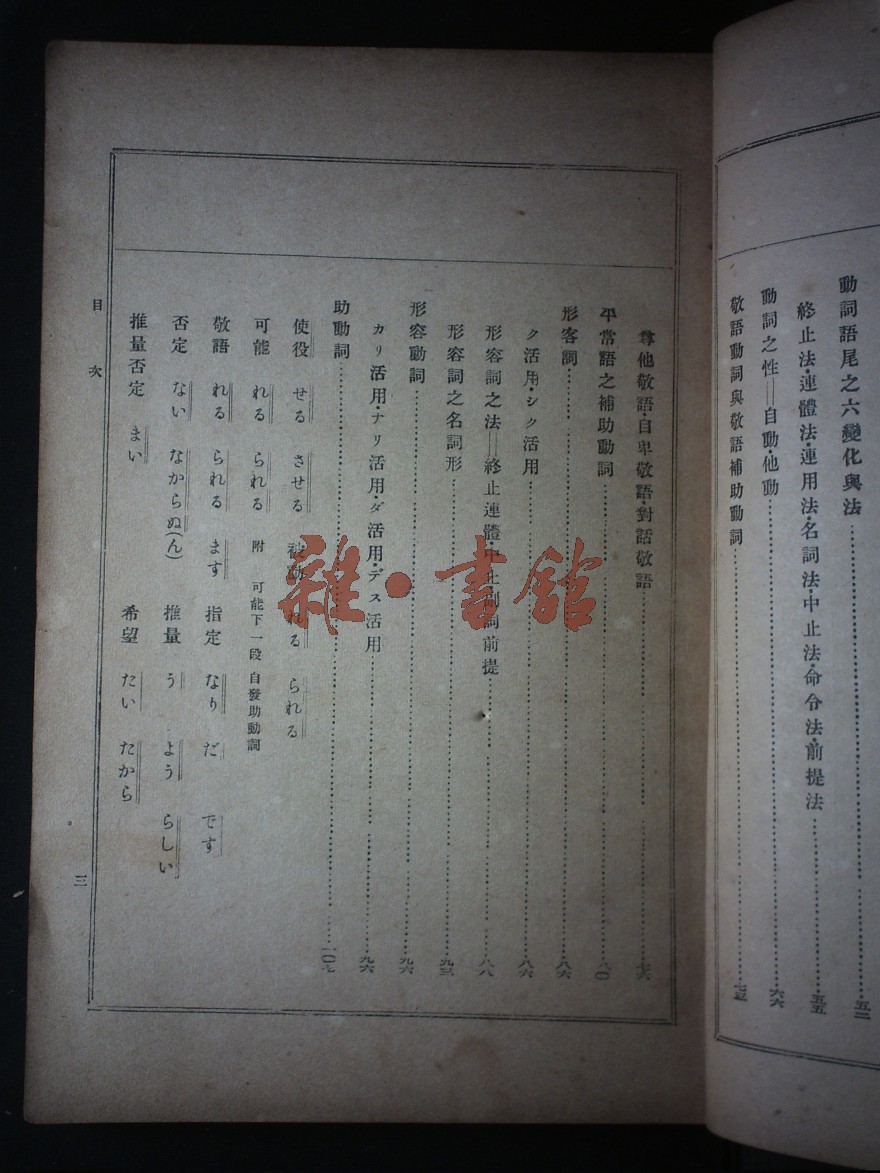 動詞語尾之六變化與法……五二
終止法·連體法·連用法·名詞法·中止法·命令法·前提法……五五
動詞之性——自動·他動……六六
敬語動詞與敬語補助動詞……七五
尊他敬語·自卑敬語·對話敬語……七六
平常語之補助動詞……八〇
形客詞……八六
ク活用·シク活用……八六
形容詞之法——終止連體·中止·副詞前提……八八
形容詞之名詞形……九三
形容動詞……九六
カリ活用·ナリ活用·ダ活用·デス活用……九六
助動詞……一〇七
使役 せる させる 被動 れる られる
可能 れる られる 附 可能下一段 自發助動詞
敬語 れる られる ます 指定 なり だ です
否定 ない なからぬ(ん) 推量 う よう らしい
推量否定 まい 希望 たい たから
目次
三
雜·書館